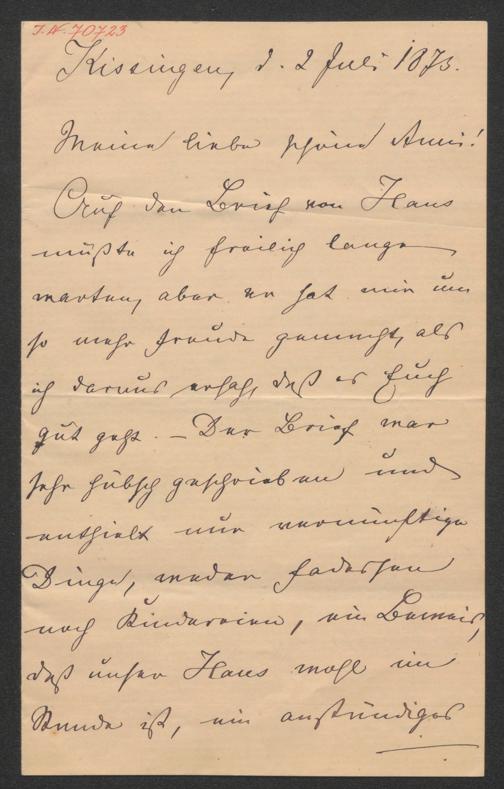 I. N. 70723
Kissingen, d. 2 Juli 1873.
Meine liebe schöne Anni!
Auf den Brief von Hans
müßte ich freilich lange
warten, aber er hat mir um
so mehr Freude gemacht, als
ich daraus ersah, daß es Euch
gut geht. – Der Brief war
sehr hübsch geschrieben und
enthielt nur vernünftige
Dinge, weder Fadessen
noch Kindereien, ein Beweis,
daß unser Hans wohl im
Stande ist, ein anständiges